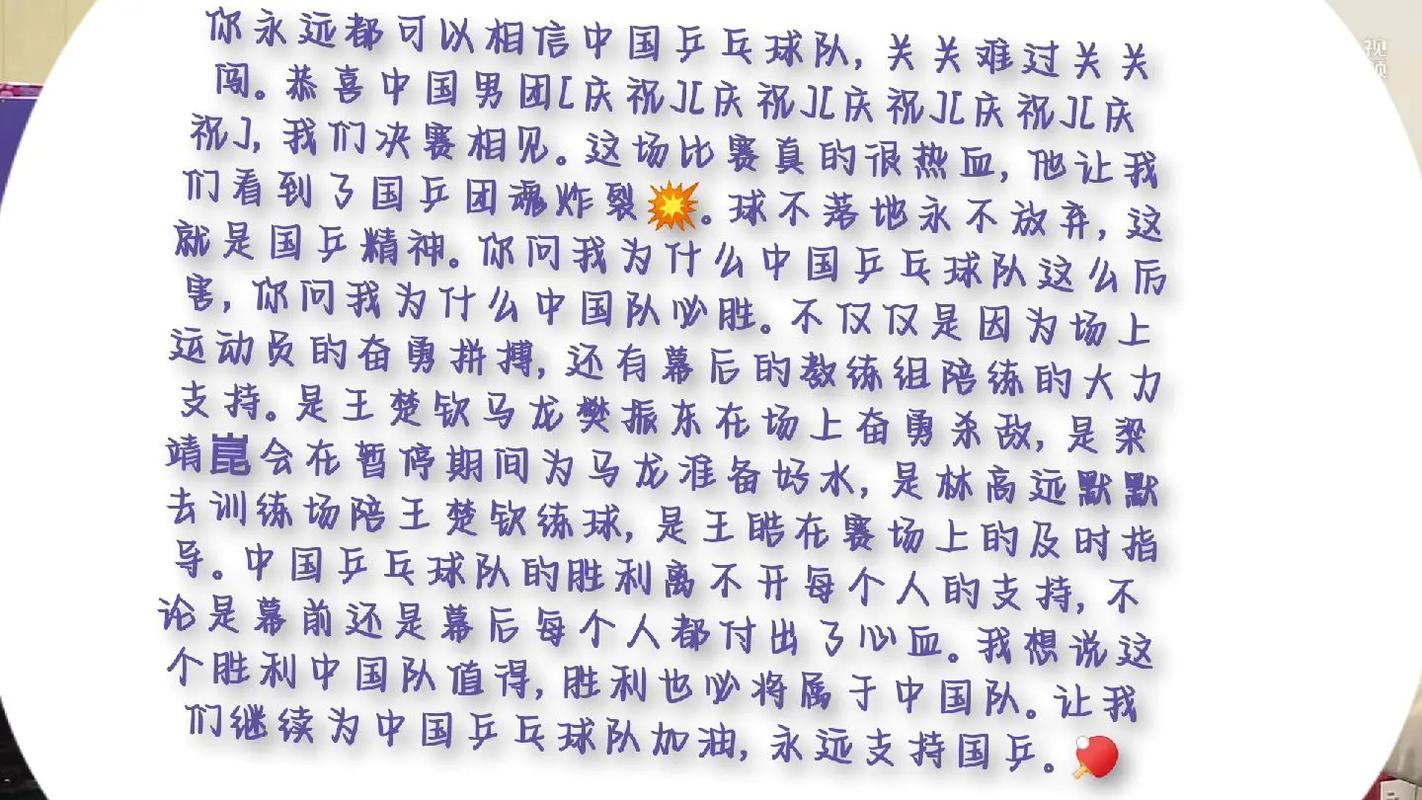 你永远都可以相信中国乒乓球队，关关难过关关
闯。恭喜中国男团[庆祝][庆祝][庆祝][庆祝][庆
祝]，我们决赛相见。这场比赛真的很热血，他让我
们看到了国乒团魂炸裂💥。球不落地永不放弃，这
就是国乒精神。你问我为什么中国乒乓球队这么厉
害，你问我为什么中国队必胜。不仅仅是因为场上
运动员的奋勇拼搏，还有幕后的教练组陪练的大力
支持。是王楚钦马龙樊振东在场上奋勇杀敌，是梁
靖崑会在暂停期间为马龙准备好水，是林高远默默
去训练场陪王楚钦练球，是王皓在赛场上的及时指
导。中国乒乓球队的胜利离不开每个人的支持，不
论是幕前还是幕后每个人都付出了心血。我想说这
个胜利中国队值得，胜利也必将属于中国队。让我
们继续为中国乒乓球队加油，永远支持国乒。🏓
视
频